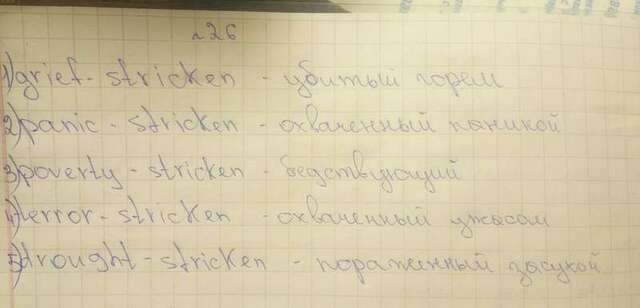 №26
1) grief-stricken - убитый горем
2) panic-stricken - охваченный паникой
3) poverty-stricken - бедствующий
4) terror-stricken - охваченный ужасом
5) drought-stricken - пораженный засухой